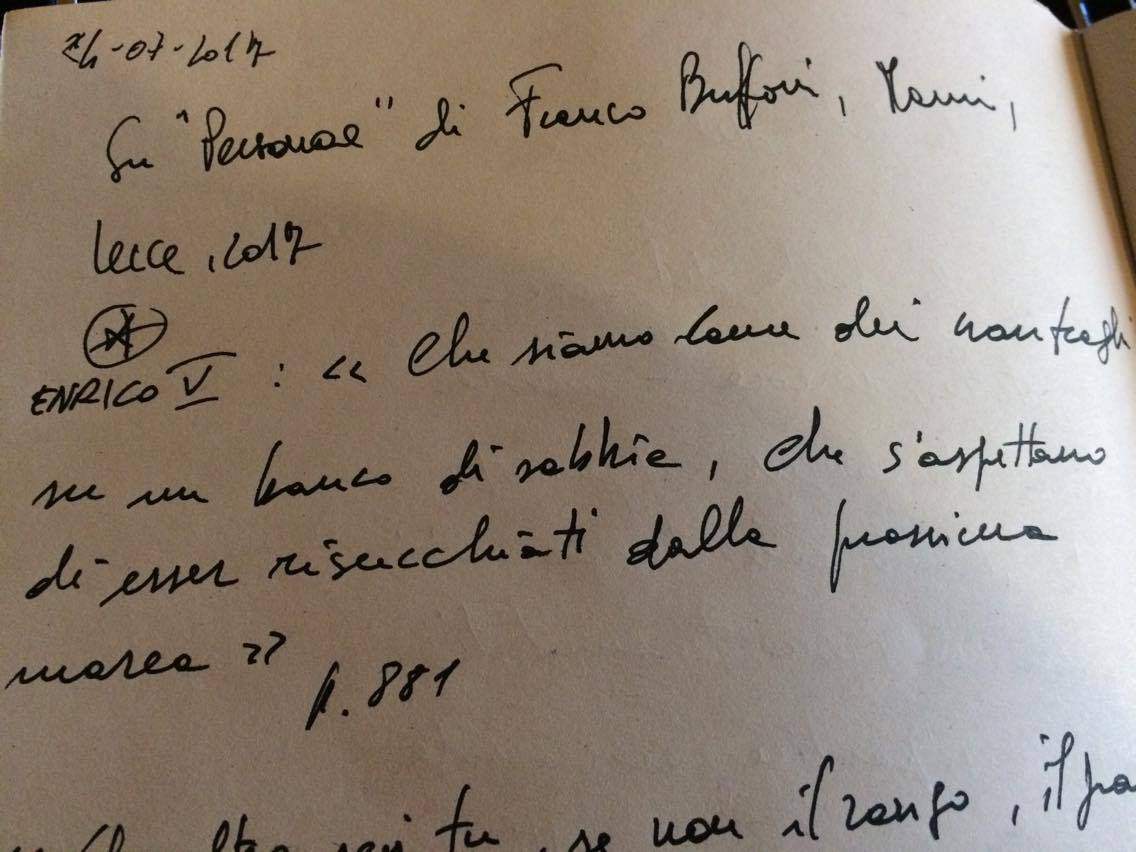 24-07-2017
Su "Personae" di Franco Buffoni, Manni,
Lecce, 2017
ENRICO V : « Che siamo come dei naufraghi
su un banco di sabbia, che s'aspettano
di esser risucchiati dalla prossima
marea » p. 881
Che altro sei tu, se non il rango, il